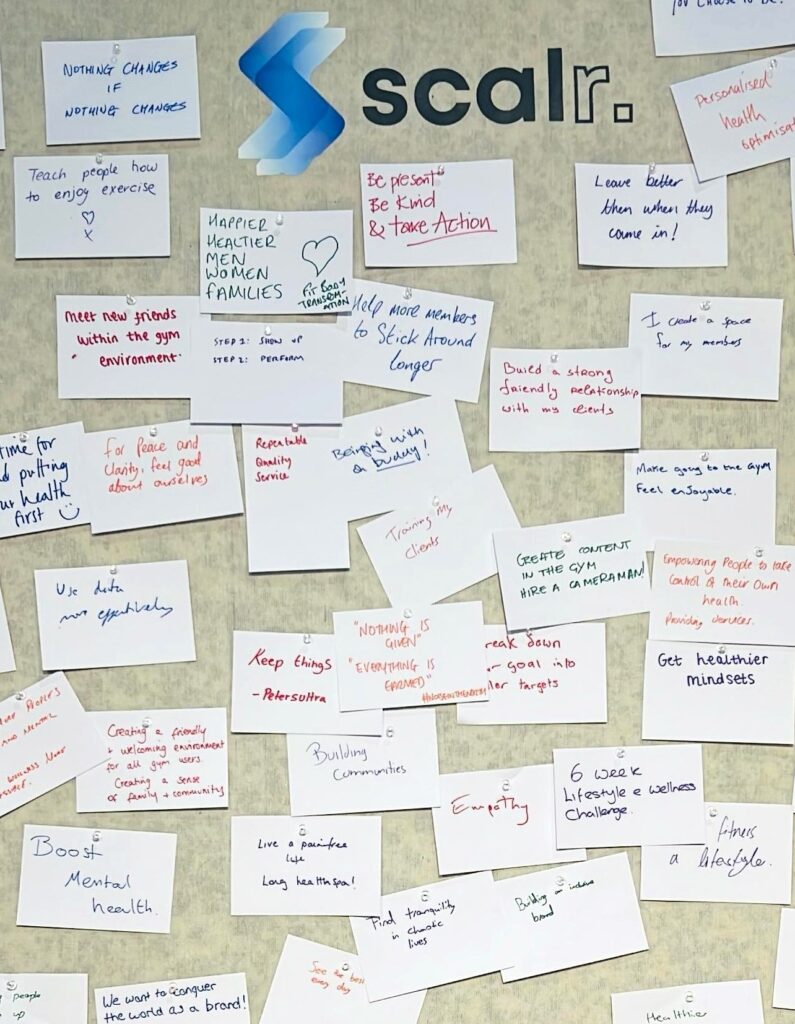 scalr.
YOU CHOOSE TO BE!
NOTHING CHANGES
IF
NOTHING CHANGES
Personalised
health
Teach people how
to enjoy exercise
X
Be present
Be Kind
& take Action
Leave better
then when they
came in!
HAPPIER
HEALTIER
MEN
WOMEN
FAMILIES
FIT BODY
TRANSFORM-
ATION
Meet new friends
within the gym
environment.
STEP 1: SHOW UP
STEP 2: PERFORM
Help more members
to Stick Around
longer
I create a space
for my members
Build a strong
friendly relationship
with my clients
time for
putting
health
first
For Peace and
Clarity, feel good
about ourselves
Repeatable
Quality
Service
Bringing with
a buddy!
Make going to the gym
feel enjoyable.
Training My
Clients
CREATE CONTENT
IN THE GYM
HIRE A CAMERAMAN!
Empowering People to take
Control of their Own
health.
Providing services.
Use data
more effectively
"NOTHING IS
GIVEN"
"EVERYTHING IS
EARNED"
Keep things
reak down
goal into
targets
Get healthier
mindsets
AND MENTAL
Creating a friendly
+ welcoming environment
for all gym users.
Creating a sense
of family + community
Building
Communities
Empathy
6 week
Lifestyle & wellness
Challenge.
fitness
a lifestyle.
Boost
Mental
health.
Live a pain free
life
Long healthspa!
Find tranquility
in chaotic
lives
Building an inclusive
brand
See the best
every day
people
up
We want to conquer
the world as a brand!
Healthier